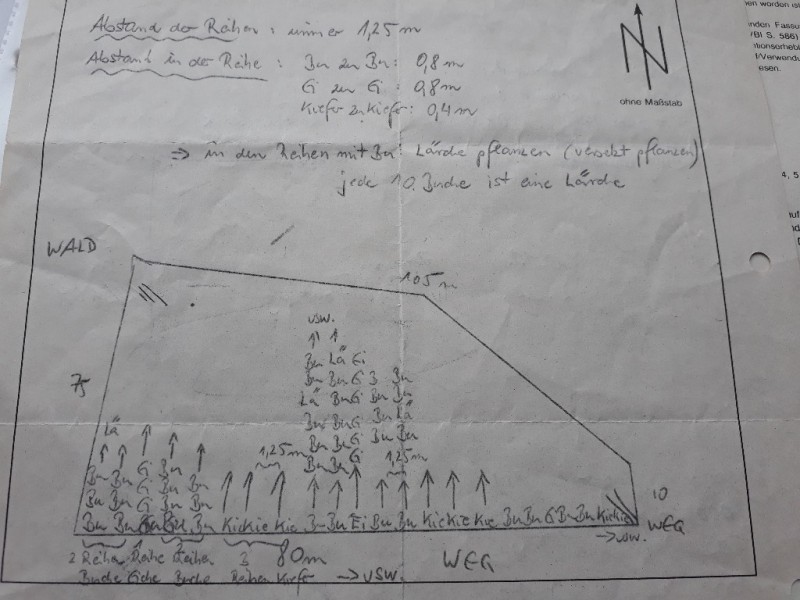 Abstand der Reihen: immer 1,25 m
Abstand in der Reihe: Bu zu Bu: 0,8 m
Ei zu Ei: 0,8 m
Kiefer zu Kiefer: 0,4 m
ohne Maßstab
=> in den Reihen mit Bu: Lärche pflanzen (versetzt pflanzen)
jede 10. Buche ist eine Lärche
WALD
105 m
usw.
Bu Lä Ei
Bu Bu Ei B Bu
Lä Bu Ei Bu Bu
Bu Bu Ei Bu Lä
Bu Bu Ei Bu Bu
Bu Bu Ei
75
Lä
1,25 m
1,25 m
Bu Bu Ei Bu
Bu Bu Ei Bu Bu
Bu Bu Ei Bu Bu
10
Bu Bu Bu Kie Kie Kie Bu Bu Ei Bu Bu Kie Kie Kie Bu Bu Ei Bu Bu Kie Kie
WEG
-> usw.
2 Reihen Reihe Reihen 3 80m
WEG
Buche Eiche Buche Reihen Kiefer -> usw.